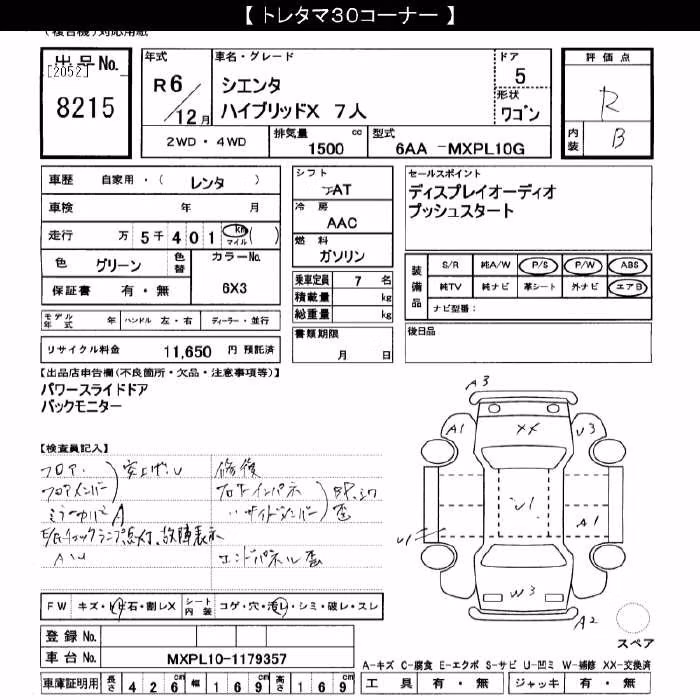 【 トレタマ30コーナー 】
(複合機)対応用紙
出品No.
[2052]
8215
年式
R6/12月
車名・グレード
シエンタ
ハイブリッドX 7人
ドア
5
形状
ワゴン
評価点
R
内装
B
2WD・4WD
排気量 1500 cc
型式 6AA -MXPL10G
車歴 自家用・( レンタ )
車検 年 月
走行 万 5千401 km マイル ( )
色 グリーン 色替 カラーNo. 6X3
保証書 有・無
モデル年式 年 ハンドル 左・右 ディーラー・並行
リサイクル料金 11,650 円 預託済
シフト
AT
冷房
AAC
燃料
ガソリン
乗車定員 7 名
積載量 kg
総重量 kg
書類期限
月 日
セールスポイント
ディスプレイオーディオ
プッシュスタート
装備品
S/R 純A/W P/S P/W ABS
純TV 純ナビ 革シート 外ナビ エアB
ナビ型番:
後日品
【出品店申告欄(不良箇所・欠品・注意事項等)】
パワースライドドア
バックモニター
【検査員記入】
フロア
フロアメンバー
突上げU
ミラーカバーA
E/Gチェックランプ点灯、故障表示
AU
修復
エンドパネル歪
FW キズ・トビ石・割レX シート内装 コゲ・穴・汚レ・シミ・破レ・スレ
登録No.
車台No. MXPL10-1179357
車庫証明用 長さ 426cm 幅 169cm 高さ 169cm
A3
A1
XX
U3
U1
A1
U1
W3
A2
スペア
A-キズ C-腐食 E-エクボ S-サビ U-凹ミ W-補修 XX-交換済
工具 有・無 ジャッキ 有・無